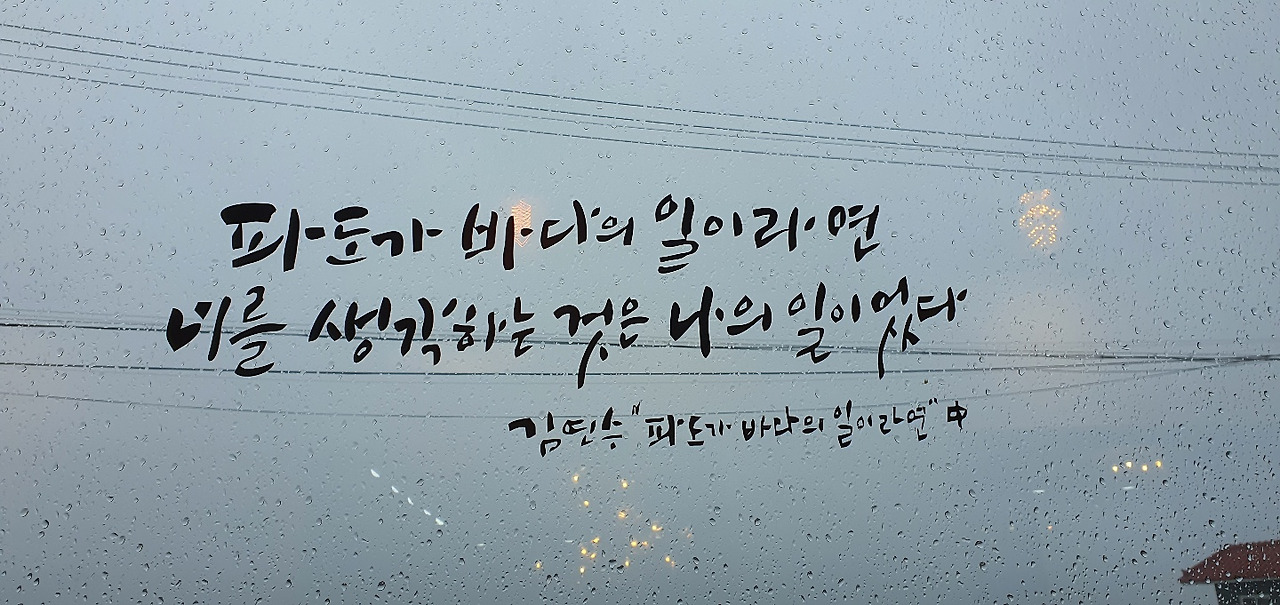 파도가 바다의 일이라면
너를 생각하는 것은 나의 일이었다
김연수 "파도가 바다의 일이라면" 中